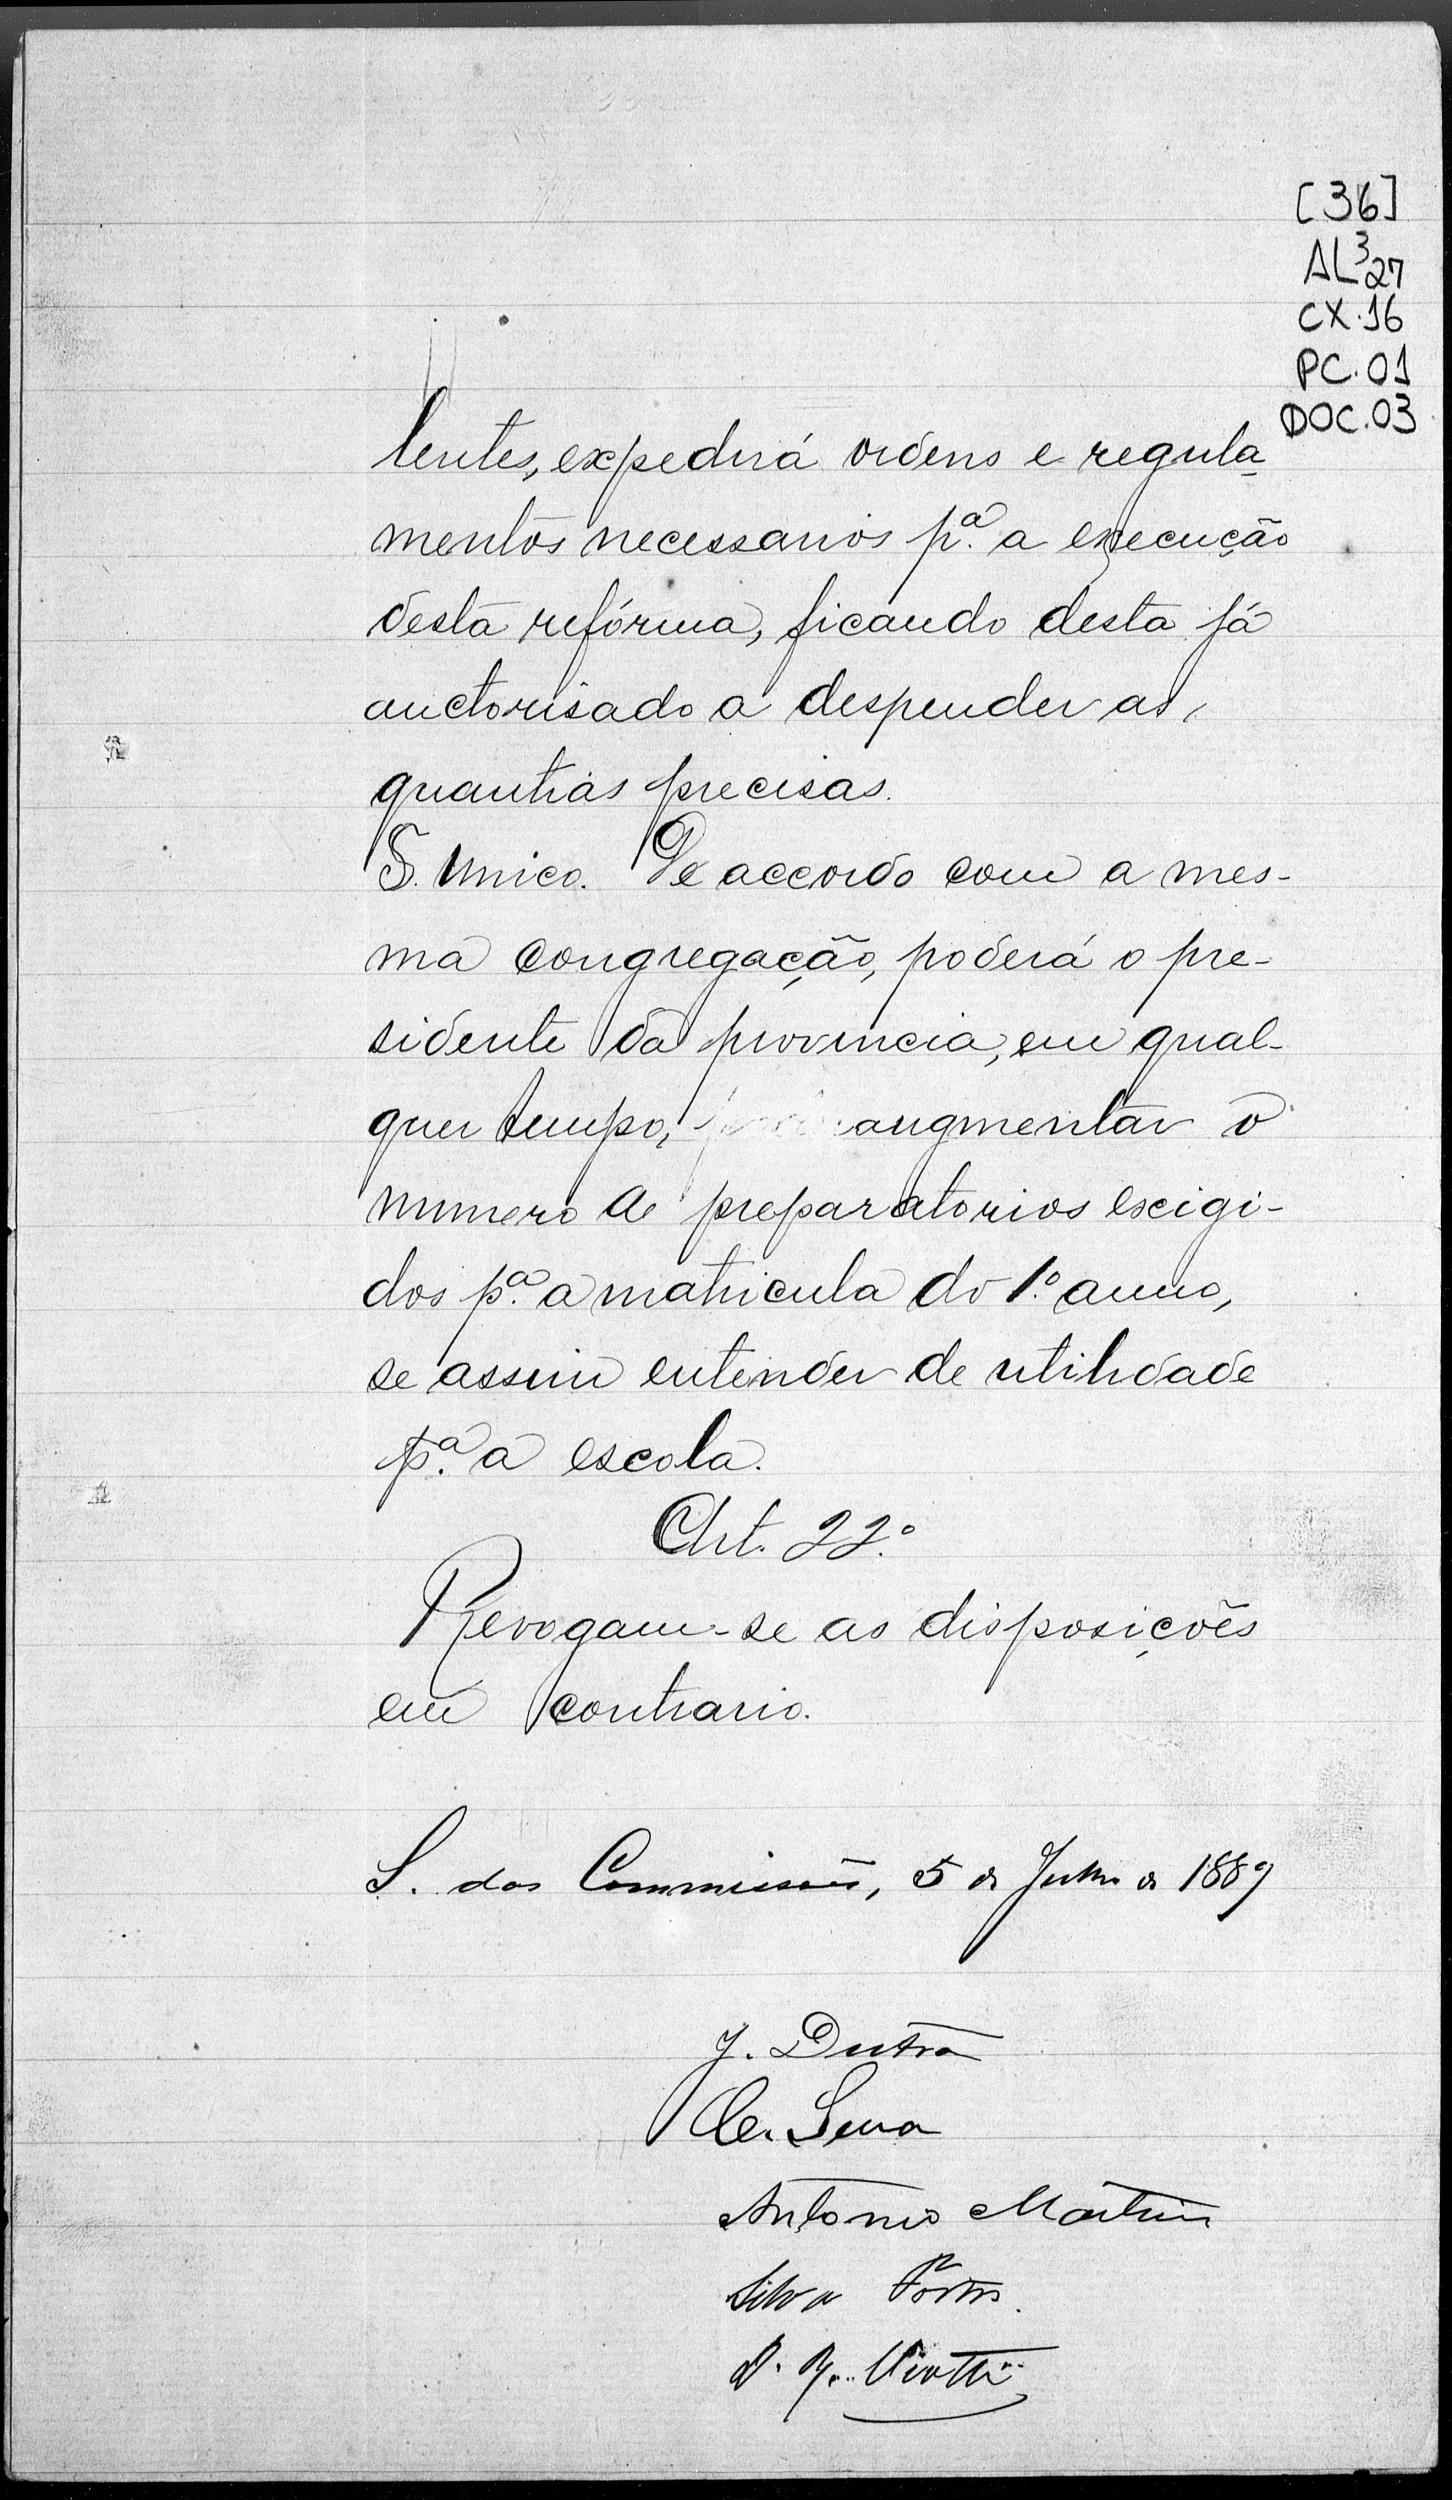 [36]
AL³27
CX.16
PC.01
DOC.03
lentes, expedirá ordens e regula-
mentos necessarios p.ª a execução
desta refórma, ficando desta já
auctorisado a despender as
quantias precisas.
§. Unico. De accordo com a mes-
ma congregação, poderá o pre-
sidente da provincia, em qual-
quer tempo, augmentar o
numero de preparatorios exigi-
dos p.ª a matricula do 1.º anno,
se assim entender de utilidade
p.ª a escola.
Art. 22.º
Revogam-se as disposições
em contrario.
S. das Commissões, 5 de Julho de 1889
J. Dutra
C. Sena
Antonio Martins
Silva Fortes.
Viotti